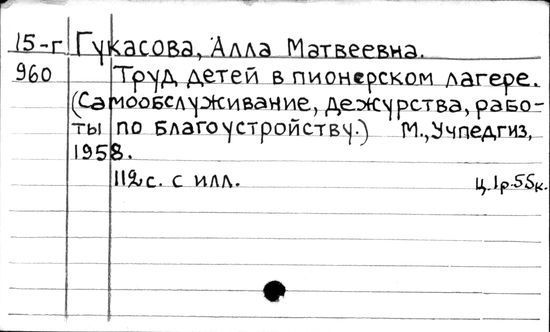 15-г Гукасова, Алла Матвеевна.
960 Труд детей в пионерском лагере.
(Самообслуживание, дежурства, рабо-
ты по благоустройству.) М., Учпедгиз,
1958.
112 с. с илл. ц. 1р. 55к.